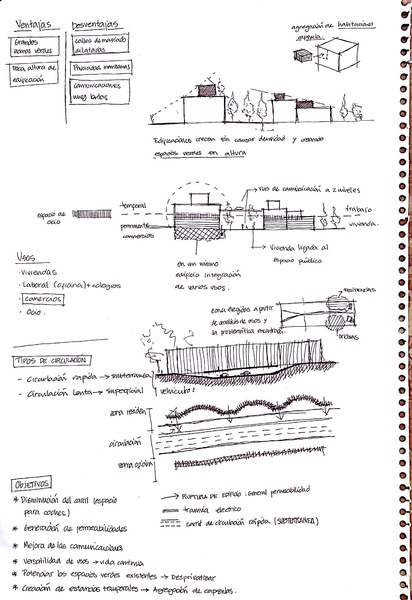 Ventajas
Desventajas
Grandes
zonas verdes
Poca altura de
edificación
calles demasiado
dilatadas
Privacidad mínima
comunicaciones
muy lentas
agregación de habitaciones
cápsula
Edificaciones crecen sin causar densidad y creando
espacios verdes en altura
vías de comunicación a 2 niveles
espacio de
ocio
temporal
permanente
comercios
trabajo
vivienda
en un mismo
edificio integración
de varios usos.
Vivienda ligada al
espacio público
Usos
· Viviendas
· Laboral (oficina) + colegios
· Comercios
· Ocio.
zona elegida a partir
de análisis de usos y
la problemática encontrada
residencias
oficinas
TIPOS DE CIRCULACIÓN
- Circulación rápida → subterránea
- Circulación lenta → superficial
vehículos
zona residen
circulación
zona oficina
OBJETIVOS
* Disminución del carril (espacio
para coches)
* Generación de permeabilidades
* Mejora de las comunicaciones
* Versatilidad de usos → vida continua
* Potenciar los espacios verdes existentes → Desprivatizar
* Creación de estancias temporales → Agregación de cápsulas.
→ RUPTURA DE EDIFICIO: General permeabilidad
tranvía eléctrico
carril de circulación rápida (SUBTERRÁNEA)